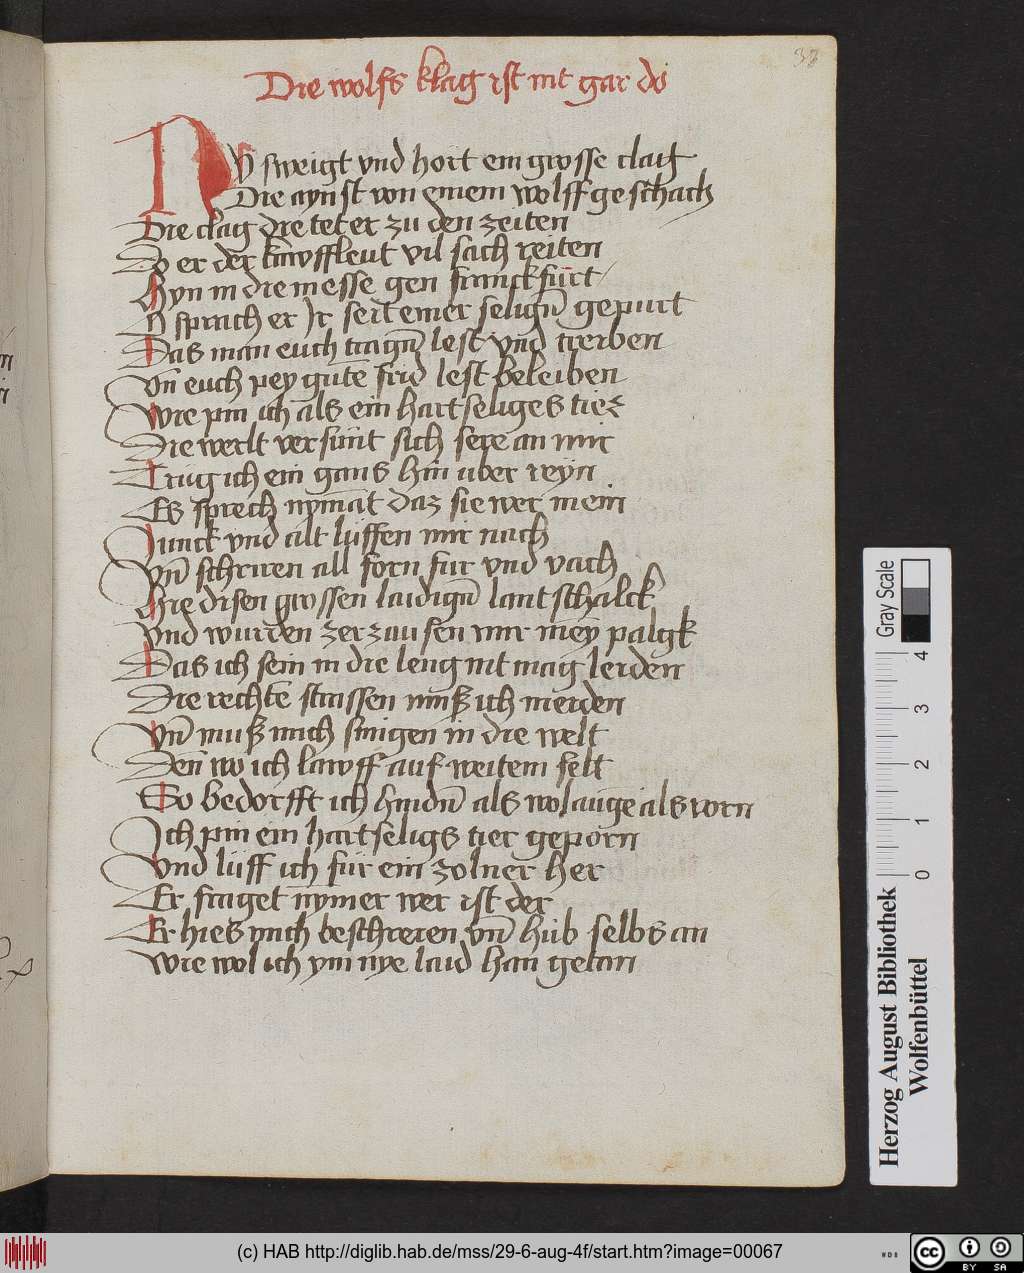 38
Die wolfs klag ist nit gar do
Ny sweigt vnd hort ein grosse clag
Die aynst von einem wolff geschach
Die clag die tet er zu den zeiten
Do er der kawffleut vil sach reiten
Hyn in die messe gen franckfurt
O sprach er Ir seit einer seligñ gepurt
Das man euch tragñ lest vnd treiben
Vñ euch pey gutē frid lest beleiben
Wie pin ich als ein hartseliges tier
Die werlt versunt sich sere an mir
Trüg ich ein gans hin uber reyn
Es sprech nymāt daz sie wer mein
Junck vnd alt lüffen mir nach
Vñ schriren all forn fur vnd vach
Hie disen grossen laidigñ lantschalck
Vnd wurden zerzausen mir mey palgk
Das ich sein in die leng nit mag leiden
Die rechtē strassen muß ich meiden
Vñ muß mich smigen in die welt
Den wo ich lawff auf weitem felt
So bedorfft ich hindñ als wol auge als vorn
Ich pin ein hartseligs tier geporn
Vnd lüff ich für ein zolner her
Er fraget nymer wer ist der
Er hies mich beschreien vñ hüb selbs an
Wie wol ich ym nye laid han getan
Gray Scale
4
3
2
1
0
Herzog August Bibliothek
Wolfenbüttel
(c) HAB http://diglib.hab.de/mss/29-6-aug-4f/start.htm?image=00067
WDB
cc
BY SA